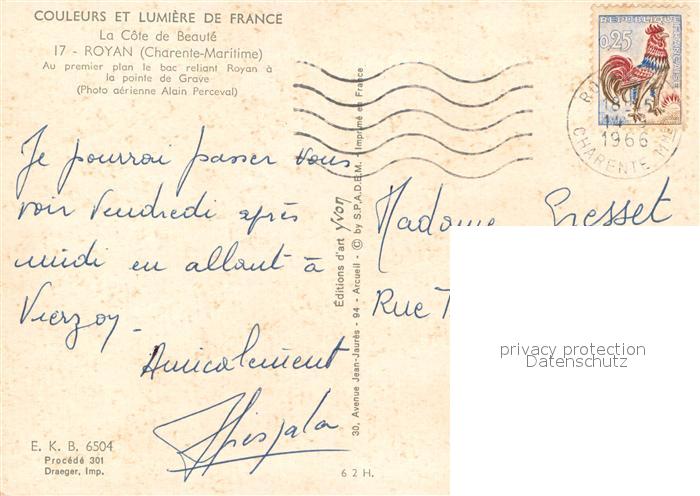 COULEURS ET LUMIÈRE DE FRANCE
La Côte de Beauté
17 - ROYAN (Charente-Maritime)
Au premier plan le bac reliant Royan à
la pointe de Grave
(Photo aérienne Alain Perceval)
Je pourrai passer vous
voir Vendredi après
midi en allant à
Vierzoy.
Amicalement
E. K. B. 6504
Procédé 301
Draeger, Imp.
6 2 H.
Éditions d'art yvon
30, Avenue Jean-Jaurès - 94 - Arcueil - © by S.P.A.D.E.M. - Imprimé en France
REPUBLIQUE FRANÇAISE
0,25
1966
CHARENTE MME
Madame Gresset
Rue
privacy protection
Datenschutz